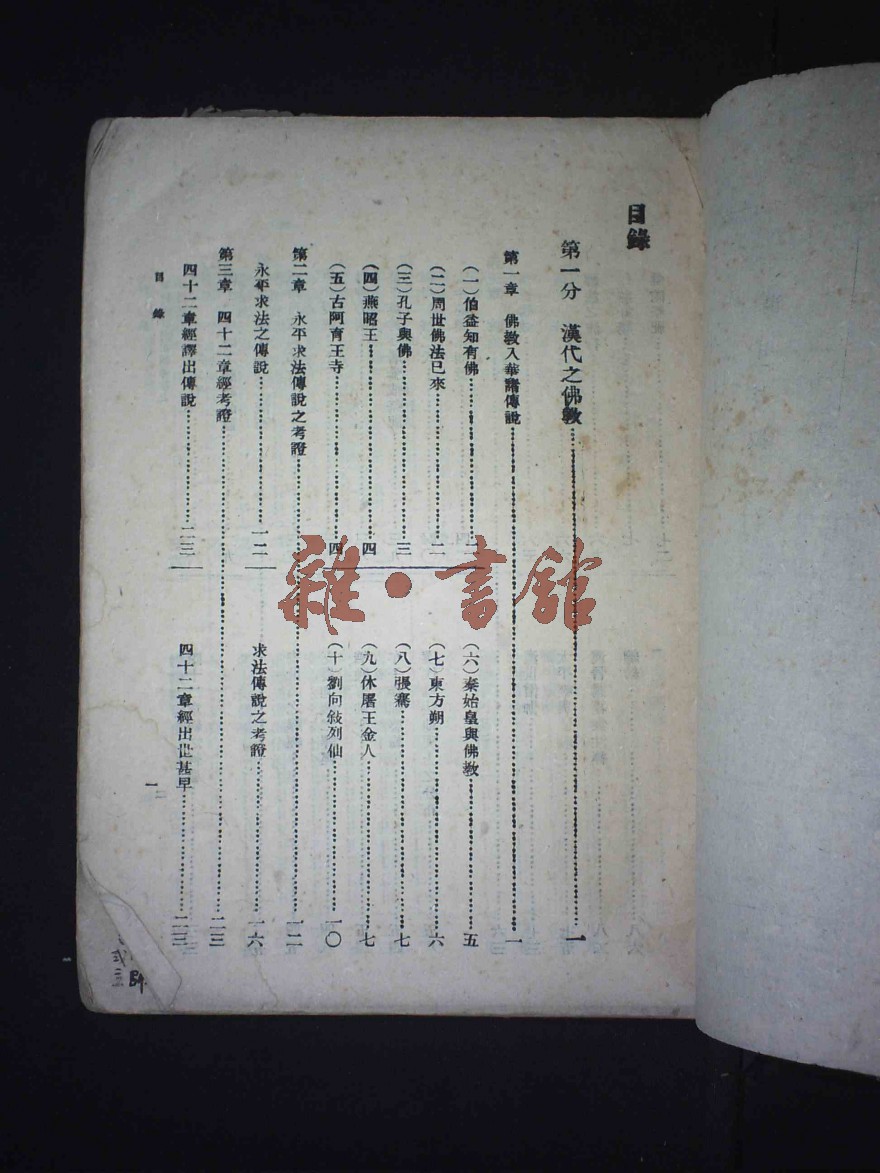 目錄
第一分　漢代之佛敎……一
第一章　佛敎入華諸傳說……一
（一）伯益知有佛……
（二）周世佛法已來……二
（三）孔子與佛……三
（四）燕昭王……四
（五）古阿育王寺……四
（六）秦始皇與佛敎……五
（七）東方朔……六
（八）張騫……七
（九）休屠王金人……七
（十）劉向敍列仙……一〇
第二章　永平求法傳說之考證……一二
永平求法之傳說……一二
求法傳說之考證……一六
第三章　四十二章經考證……二三
四十二章經譯出傳說……二三
四十二章經出世甚早……二三
目錄
一
雜·書館